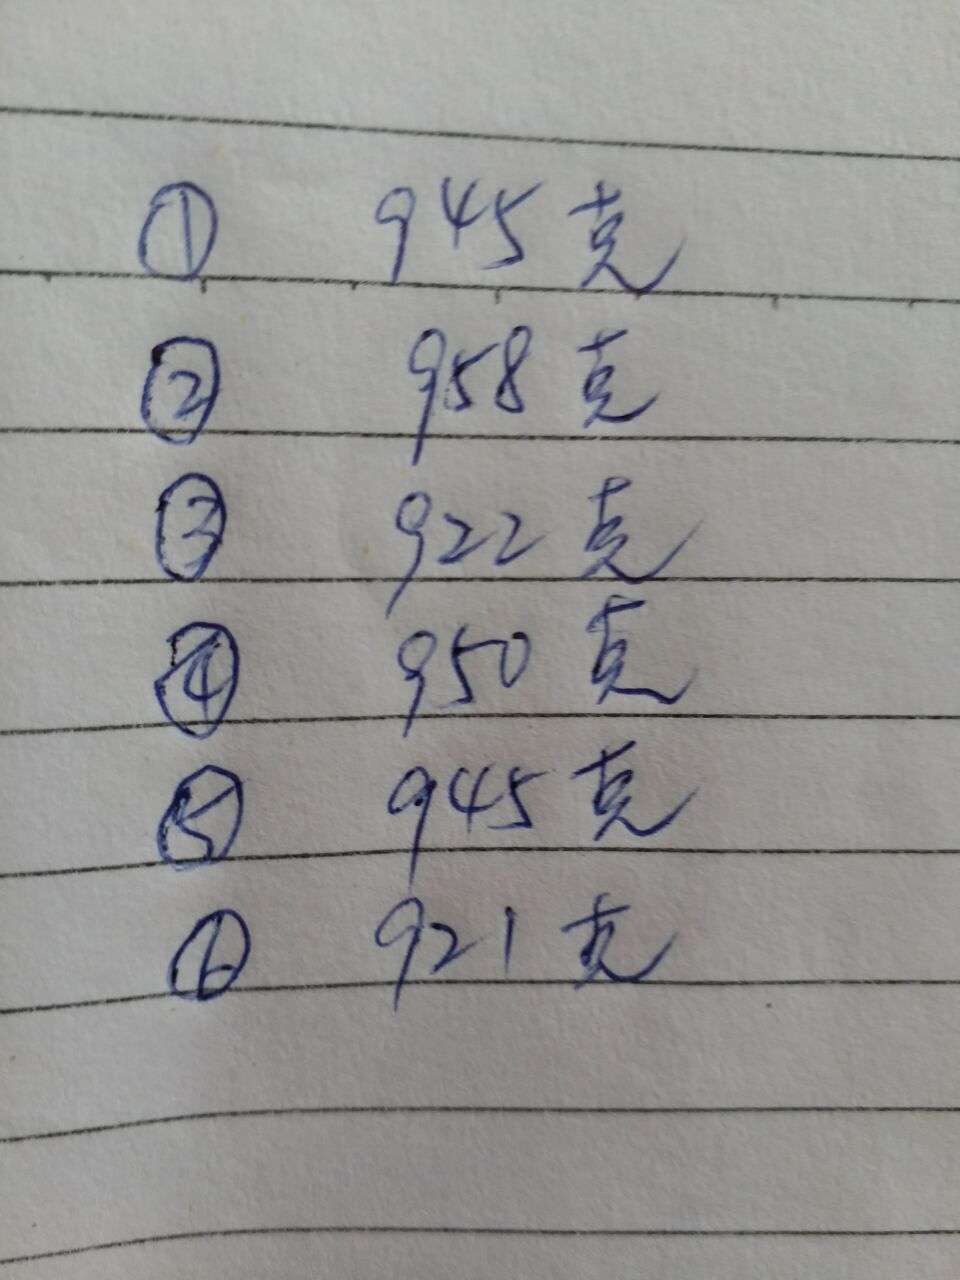 ① 945克
② 958克
③ 922克
④ 950克
⑤ 945克
⑥ 921克